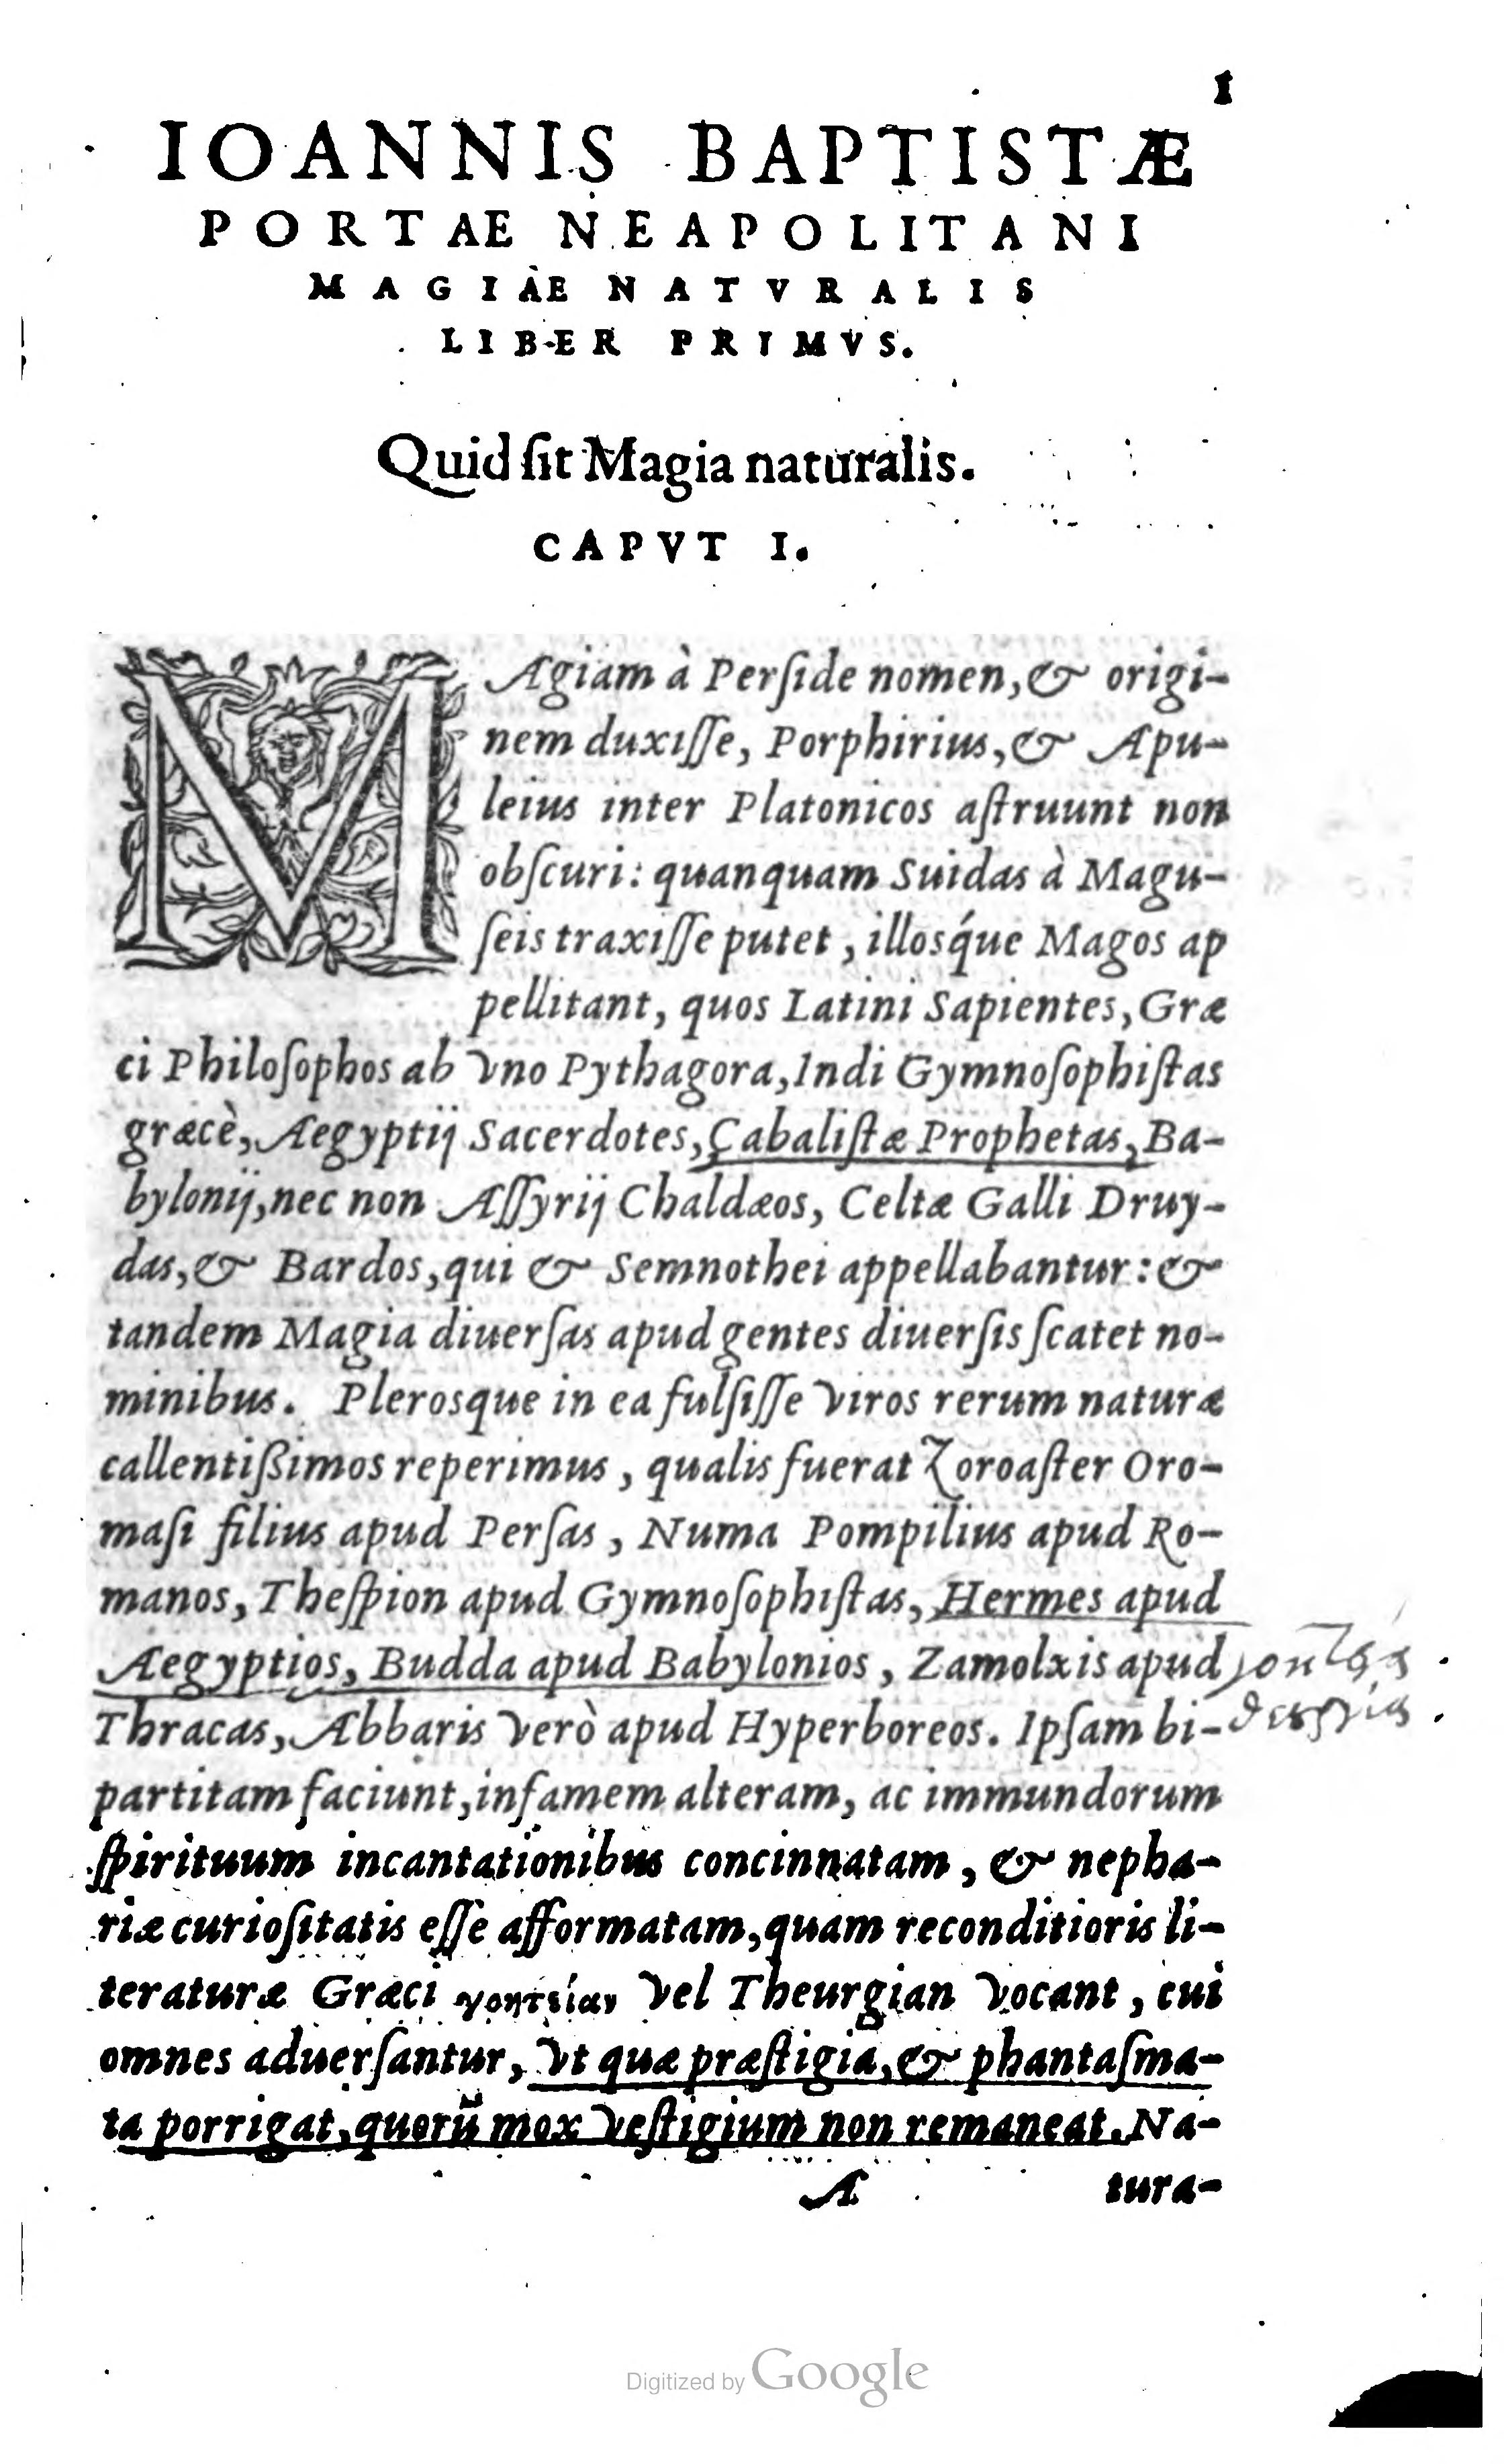 1
IOANNIS BAPTISTÆ
PORTAE NEAPOLITANI
MAGIAE NATVRALIS
LIBER PRIMVS.
Quid ſit Magia naturalis.
CAPVT I.
MAgiam à Perſide nomen, & origi-
nem duxiſſe, Porphirius, & Apu-
leius inter Platonicos aſtruunt non
obſcuri: quanquam Suidas à Magu-
ſeis traxiſſe putet, illosq́ue Magos ap
pellitant, quos Latini Sapientes, Græ
ci Philoſophos ab vno Pythagora, Indi Gymnoſophiſtas
græcè, Aegyptij Sacerdotes, Cabaliſtæ Prophetas, Ba-
bylonij, nec non Aſſyrij Chaldæos, Celtæ Galli Druy-
das, & Bardos, qui & Semnothei appellabantur: &
tandem Magia diuerſas apud gentes diuerſis ſcatet no-
minibus. Plerosque in ea fulſiſſe viros rerum naturæ
callentiſſimos reperimus, qualis fuerat Zoroaſter Oro-
maſi filius apud Perſas, Numa Pompilius apud Ro-
manos, Theſpion apud Gymnoſophiſtas, Hermes apud
Aegyptios, Budda apud Babylonios, Zamolxis apud
Thracas, Abbaris verò apud Hyperboreos. Ipſam bi-
partitam faciunt, infamem alteram, ac immundorum
ſpirituum incantationibus concinnatam, & nepha-
riæ curioſitatis eſſe afformatam, quam reconditioris li-
teraturæ Græci γοητείαν vel Theurgian vocant, cui
omnes aduerſantur, vt quæ præſtigia, & phantaſma-
ta porrigat, quorũ mox veſtigium non remaneat. Na-
A tura-
Digitized by Google